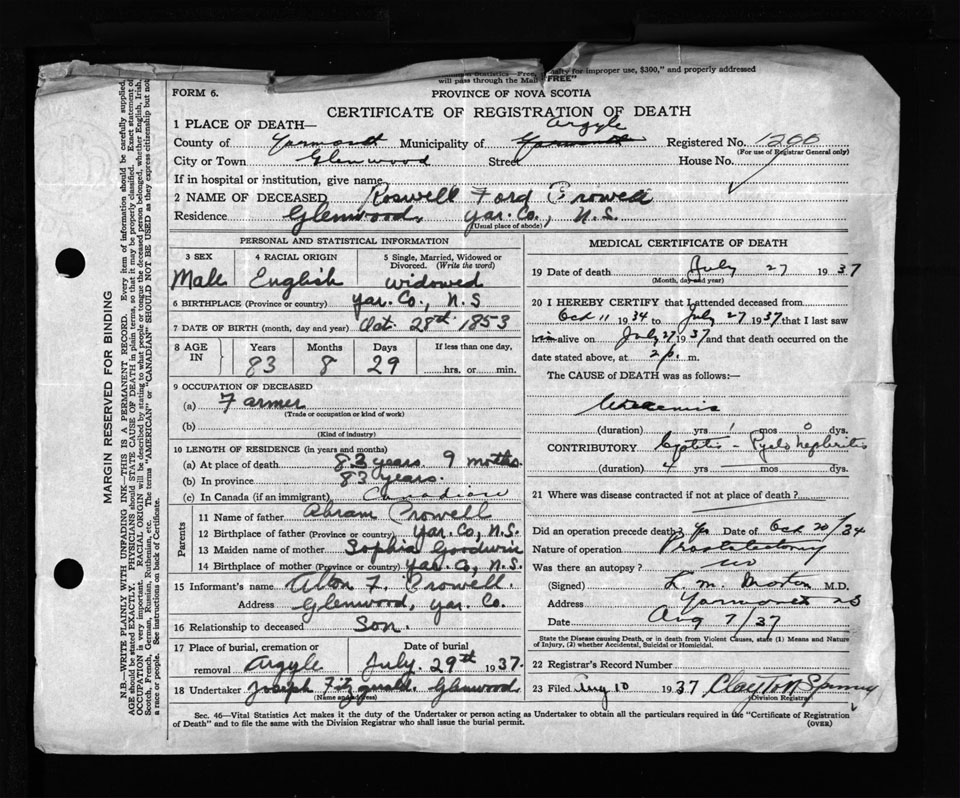 Statistics—Free, penalty for improper use, $300," and properly addressed
will pass through the Mail "FREE"
FORM 6.
PROVINCE OF NOVA SCOTIA
CERTIFICATE OF REGISTRATION OF DEATH
1 PLACE OF DEATH— Argyle
County of Yarmouth Municipality of Yarmouth Registered No. 1200
(For use of Registrar General only)
City or Town Glenwood Street House No.
If in hospital or institution, give name
2 NAME OF DECEASED Roswell Ford Crowell
Residence Glenwood, Yar. Co., N.S.
(Usual place of abode)
PERSONAL AND STATISTICAL INFORMATION
3 SEX 4 RACIAL ORIGIN 5 Single, Married, Widowed or
Divorced. (Write the word)
Male English widowed
6 BIRTHPLACE (Province or country) Yar. Co., N.S
7 DATE OF BIRTH (month, day and year) Oct. 28th 1853
8 AGE IN Years Months Days If less than one day,
83 8 29 hrs. or min.
9 OCCUPATION OF DECEASED
(a) Farmer
(Trade or occupation or kind of work)
(b)
(Kind of industry)
10 LENGTH OF RESIDENCE (in years and months)
(a) At place of death 83 years. 9 moths.
(b) In province 83 years.
(c) In Canada (if an immigrant) Canadian
Parents
11 Name of father Abram Crowell
12 Birthplace of father (Province or country) Yar. Co, N.S.
13 Maiden name of mother Sophia Goodwin
14 Birthplace of mother (Province or country) Yar. Co, N.S.
15 Informant's name Alton F. Crowell.
Address Glenwood, Yar. Co.
16 Relationship to deceased Son.
17 Place of burial, cremation or Date of burial
removal Argyle July. 29th 1937.
18 Undertaker Joseph Glenwood
(Name and address)
MEDICAL CERTIFICATE OF DEATH
19 Date of death July 27 1937
(Month, day and year)
20 I HEREBY CERTIFY that I attended deceased from
Oct 11 1934 to July 27 1937 that I last saw
him alive on July 27 1937 and that death occurred on the
date stated above, at 2 p. m.
The CAUSE of DEATH was as follows:—
Uraemia
(duration) yrs 1 mos 0 dys.
CONTRIBUTORY Cystitis - Pyelo nephritis
(duration) 4 yrs mos dys.
21 Where was disease contracted if not at place of death?
Did an operation precede death? Yes Date of Oct 20/34
Nature of operation Prostatectomy
Was there an autopsy? no
(Signed) L. M. Morton M.D.
Address Yarmouth NS
Date Aug 7/37
State the Disease causing Death, or in death from Violent Causes, state (1) Means and Nature
of Injury, (2) whether Accidental, Suicidal or Homicidal.
22 Registrar's Record Number
23 Filed Aug 10 1937 Clayton Spinney
(Division Registrar)
Sec. 46—Vital Statistics Act makes it the duty of the Undertaker or person acting as Undertaker to obtain all the particulars required in the "Certificate of Registration
of Death" and to file the same with the Division Registrar who shall issue the burial permit. (OVER)
MARGIN RESERVED FOR BINDING
N.B.—WRITE PLAINLY WITH UNFADING INK—THIS IS A PERMANENT RECORD. Every item of information should be carefully supplied.
AGE should be stated EXACTLY. PHYSICIANS should STATE CAUSE OF DEATH in plain terms, so that it may be properly classified. Exact statement of
OCCUPATION is very important. RACIAL ORIGIN will be described by stating to what people or tongue the deceased person belonged, whether English, Irish,
Scotch, French, German, Russian, Ruthenian, etc. The terms "AMERICAN" or "CANADIAN" SHOULD NOT BE USED as they express citizenship but not
a race or people. See instructions on back of Certificate.